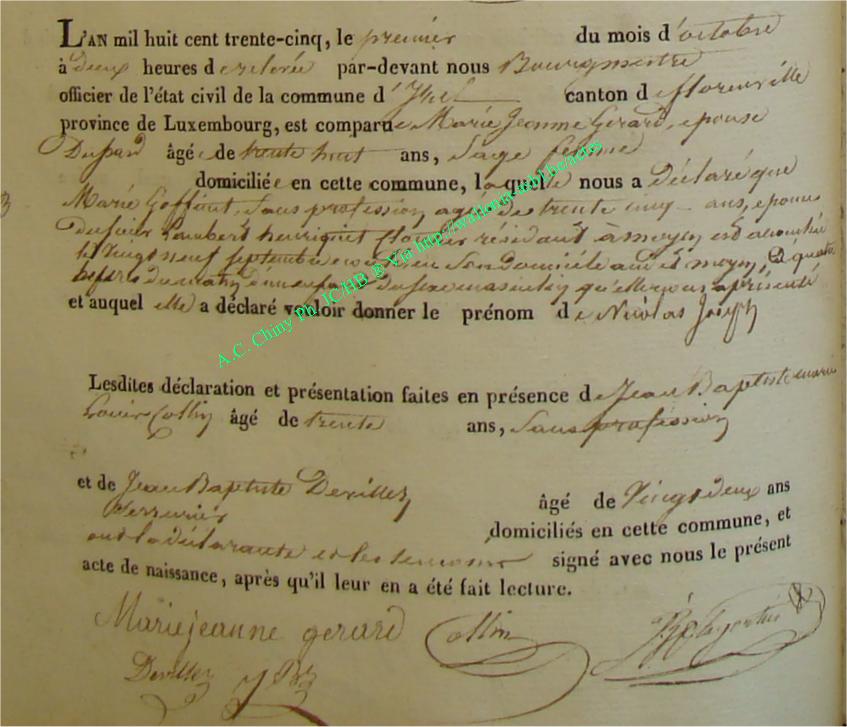 L'AN mil huit cent trente-cinq, le premier du mois d'octobre
à deux heures de relevée par-devant nous Bourgmestre
officier de l'état civil de la commune d'Izel canton de florenville
province de Luxembourg, est comparue Marie Jeanne Gerard, epouse
Dussard âgée de trente huit ans, Sage femme
domiciliée en cette commune, laquelle nous a déclaré que
Marie Goffinet, Sans profession, agée de trente cinq ans, epouse
Lambert henriquet résidant à moyen est accouchée
le Vingt neuf Septembre en Son domicile audit moyen, à quatre
heures du matin d'un enfant du sexe masculin, qu'elle nous a présenté
et auquel elle a déclaré vouloir donner le prénom de Nicolas Joseph
Lesdites déclaration et présentation faites en présence de Jean Baptiste marie
Louis Collin âgé de trente ans, Sans profession
et de Jean Baptiste Devillez âgé de Vingt deux ans
Serrurier domiciliés en cette commune, et
ont la déclarante et les temoins signé avec nous le présent
acte de naissance, après qu'il leur en a été fait lecture.
Marie jeanne gerard Collin
Devillez J Bte
A.C. Chiny Ph. ICHB @ Via http://wallonica.ichb.be/actes